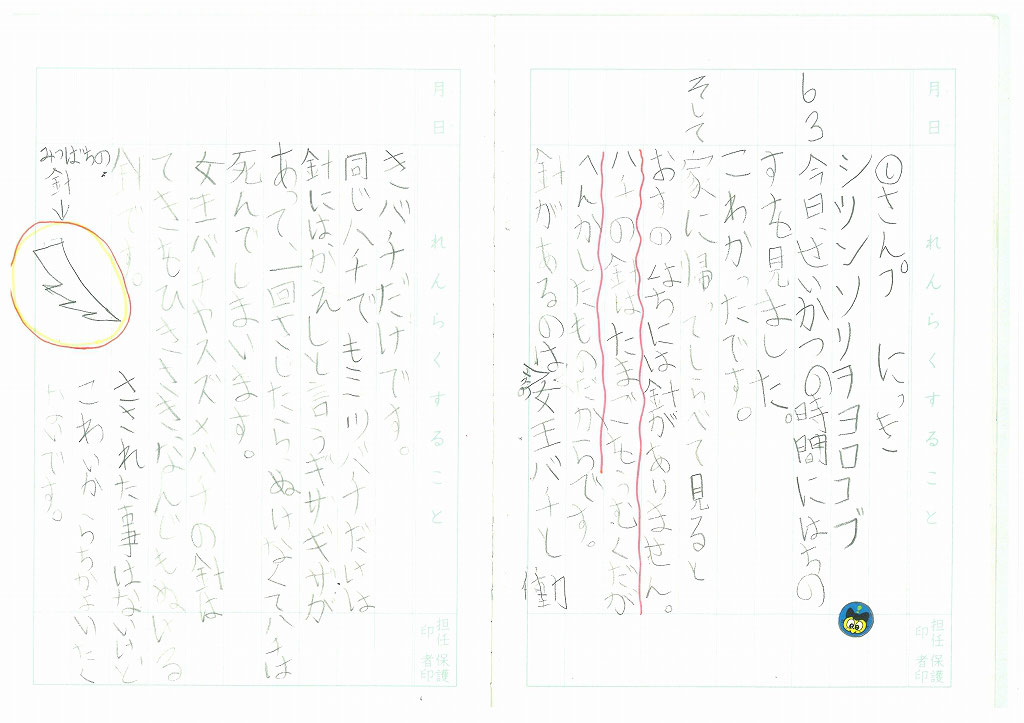 月 日
れんらくすること
担任印
保護者印
①さんぷ にっき
シツンソリヲヨロコブ
63
今日、せいかつの時間にはちの
すを見ました。
こわかったです。
そして家に帰ってしらべて見ると
おすのはちには針がありません。
ハチの針はたまごをうむくだが
へんかしたものだからです。
針があるのは、女王バチと働
きバチだけです。
同じハチでもミツバチだけは
針にはかえしと言うギザギザが
あって、一回さしたら、ぬけなくてハチは
死んでしまいます。
女王バチやスズメバチの針は
てきをひきさきなんどもぬいる
針です。
みつばちの
針↓
さされた事はないけど
こわいからちかよいたく
ないです。
月 日
れんらくすること
担任印
保護者印